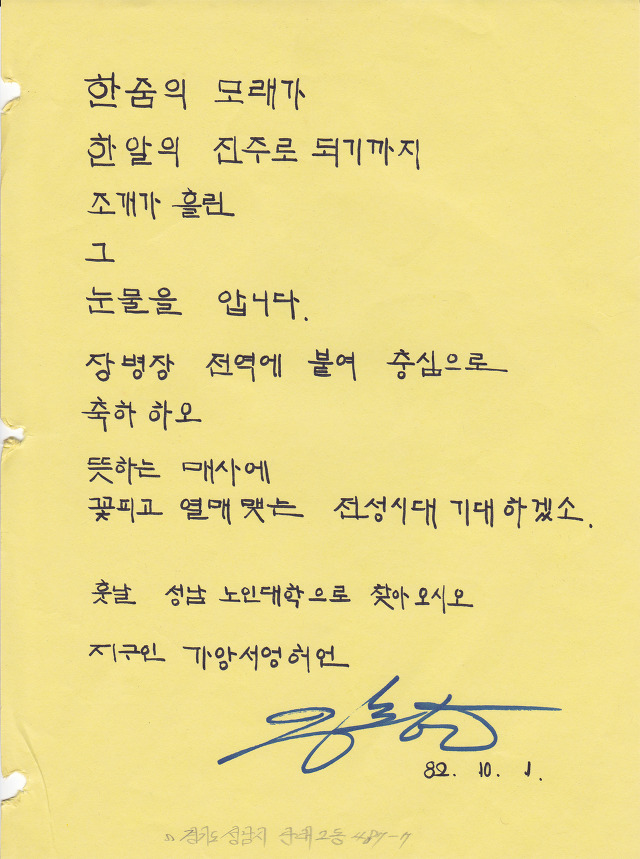 한줌의 모래가
한알의 진주로 되기까지
조개가 흘린
그
눈물을 압니다.
장병장 전역에 붙여 충심으로
축하 하오
뜻하는 매사에
꽃피고 열매 맺는 전성시대 기대 하겠소.
훗날 성남 노인대학으로 찾아 오시오
지구인 가앙서영허언
82. 10. 1.
경기도 성남시 2동 487-7